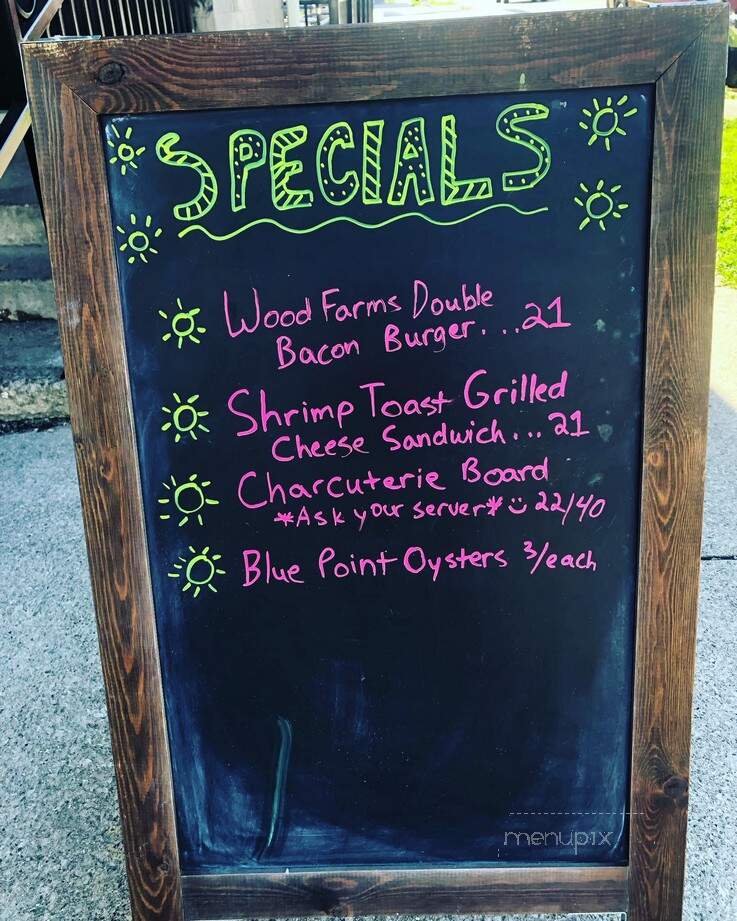 SPECIALS
Wood Farms Double
Bacon Burger...21
Shrimp Toast Grilled
Cheese Sandwich... 21
Charcuterie Board
*Ask your server* ☺ 22/40
Blue Point Oysters 3/each
menupix